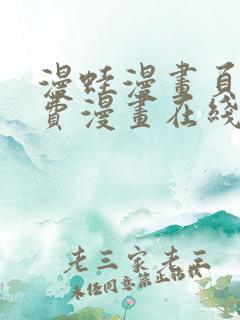 漫蛙漫畫頁
費漫畫在綫
老三家老王
未经同意禁止转载